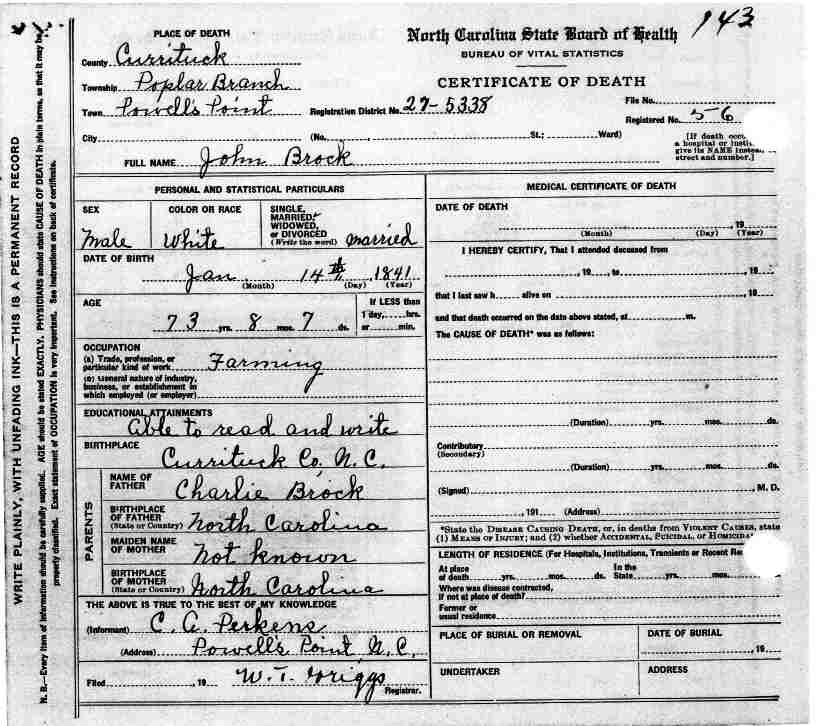 943
PLACE OF DEATH
North Carolina State Board of Health
BUREAU OF VITAL STATISTICS
CERTIFICATE OF DEATH
County Currituck
Township Poplar Branch
Town Powell's Point
Registration District No. 27-5338
File No.
Registered No. 56
City (No. St.; Ward)
[If death occ
a hospital or insti
give its NAME instea
street and number.]
FULL NAME John Brock
PERSONAL AND STATISTICAL PARTICULARS
SEX
Male
COLOR OR RACE
White
SINGLE,
MARRIED,
WIDOWED,
or DIVORCED
(Write the word) Married
DATE OF BIRTH
Jan 14th, 1841
(Month) (Day) (Year)
AGE
73 yrs. 8 mos. 7 ds.
If LESS than
1 day, hrs.
or min.
OCCUPATION
(a) Trade, profession, or
particular kind of work Farming
(b) General nature of industry,
business, or establishment in
which employed (or employer)
EDUCATIONAL ATTAINMENTS
Able to read and write
BIRTHPLACE
Currituck Co. N.C.
PARENTS
NAME OF
FATHER Charlie Brock
BIRTHPLACE
OF FATHER
(State or Country) North Carolina
MAIDEN NAME
OF MOTHER Not known
BIRTHPLACE
OF MOTHER
(State or Country) North Carolina
THE ABOVE IS TRUE TO THE BEST OF MY KNOWLEDGE
(Informant) C. A. Perkens
(Address) Powell's Point N.C.
Filed , 19 W. T. Griggs
Registrar.
MEDICAL CERTIFICATE OF DEATH
DATE OF DEATH
, 19
(Month) (Day) (Year)
I HEREBY CERTIFY, That I attended deceased from
, 19 , to , 19
that I last saw h alive on , 19
and that death occurred on the date above stated, at m.
The CAUSE OF DEATH* was as follows:
(Duration) yrs. mos. ds.
Contributory
(Secondary)
(Duration) yrs. mos. ds.
(Signed) , M. D.
, 191 (Address)
*State the DISEASE CAUSING DEATH, or, in deaths from VIOLENT CAUSES, state
(1) MEANS OF INJURY; and (2) whether ACCIDENTAL, SUICIDAL, or HOMICIDA
LENGTH OF RESIDENCE (For Hospitals, Institutions, Transients or Recent Re
At place
of death yrs. mos. ds.
In the
State yrs. mos.
Where was disease contracted,
if not at place of death?
Former or
usual residence
PLACE OF BURIAL OR REMOVAL
DATE OF BURIAL
, 19
UNDERTAKER
ADDRESS
WRITE PLAINLY, WITH UNFADING INK—THIS IS A PERMANENT RECORD
N. B.—Every item of information should be carefully supplied. AGE should be stated EXACTLY. PHYSICIANS should state CAUSE OF DEATH in plain terms, so that it may be
properly classified. Exact statement of OCCUPATION is very important. See instructions on back of certificate.